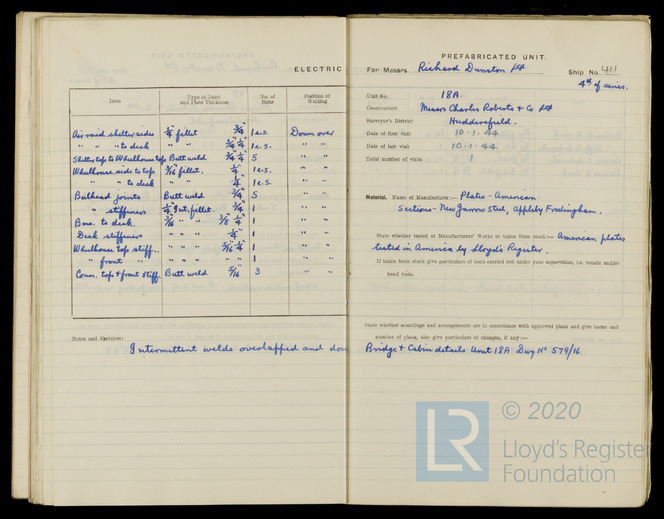 ELECTRIC
Item Type of Joint and Plate Thickness No. of Runs Position of Welding
Air raid shelter sides 1/4" fillet 3/4" 1 e.s. Down over
" " " to deck " " 3/4" 1/4" 1 e.s. " "
Shelter top to Wheelhouse top Butt weld 3/4" 1/4" 5 " "
Wheelhouse side to top 3/16" fillet. 1/4" 1 e.s. " "
" " to deck " " 1/4" 1 e.s. " "
Bulhead joints Butt weld 3/4" 5 " "
" stiffiners 1/4" Int. fillet. 3/4" 1 " "
to deck. 3/16" " " 3/8" 1/4" 1 " "
Deck stiffiners " " " 1/4" 1 " "
Wheelhouse top stiff.. " " " 5/16" 1/4" 1 " "
" front " " " " " " 1 " "
Conn. top & front stiff. Butt weld 5/16" 3 " "
Notes and Sketches:
Intermittent welds overlapped and
PREFABRICATED UNIT.
For Messrs Richard Dunston Ltd Ship No. 411
4th of series.
Unit No. 18A.
Constructors Messrs Charles Roberts & Co Ltd
Surveyor's District Huddersfield.
Date of first visit 10-1-44
Date of last visit 10-1-44
Total number of visits 1
Material. Name of Manufacturer:— Plates - American
Sections - New Jarrow Steel, Appleby Frodingham.
State whether tested at Manufacturers' Works or taken from stock:— American plates
tested in America by Lloyd's Register.
If taken from stock give particulars of tests carried out under your supervision, i.e. tensile and/or
bend tests.
State whether scantlings and arrangements are in accordance with approved plans and give name and
number of plans, also give particulars of changes, if any:—
Bridge & Cabin details Unit 18A Dwg No 579/16.
LR © 2020
Lloyd's Register
Foundation